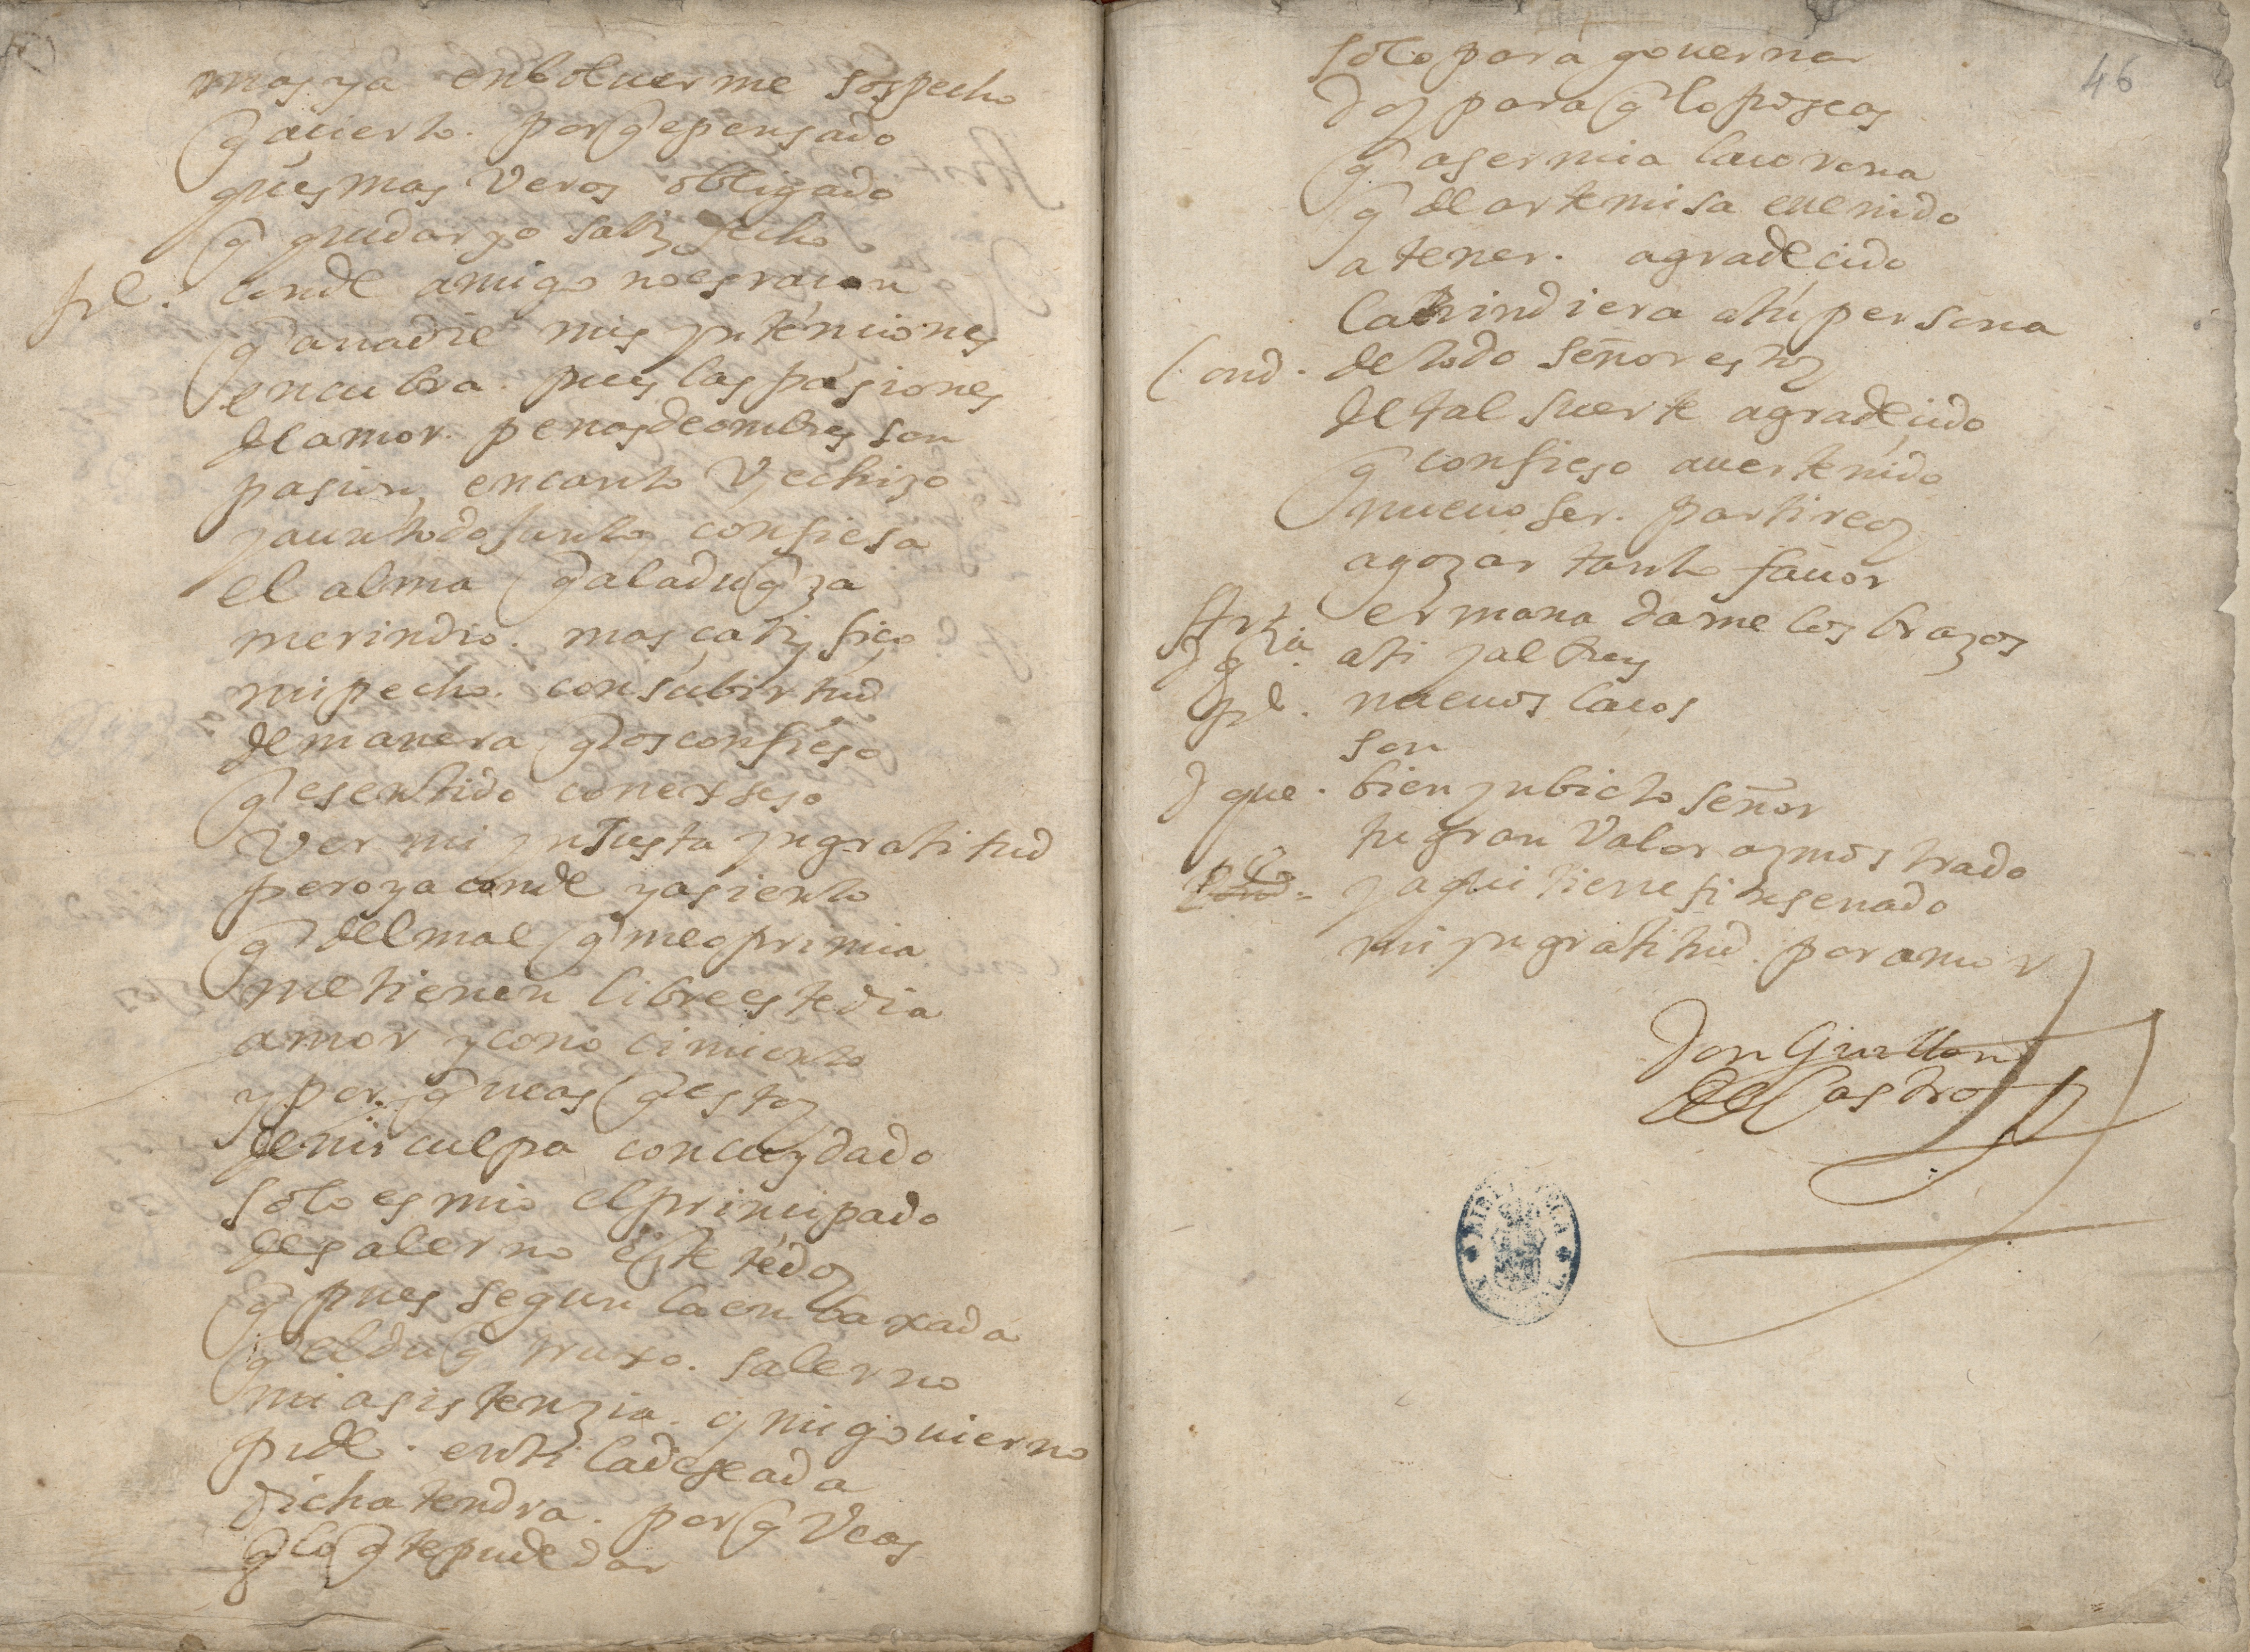 mas ya enboluerme sospecho
q̃ acierto. porq̃ e pensado
ques mas veros obligado
q̃ quedar yo satisfecho
conde amigo no es racon
q̃ a nadie mis yntenciones
encubra. pues las pasiones
de amor. penas de ombres son
pasion, encanto y echizo
y aun todo junto confiesa
el alma q̃ a la duq̃za
me rindio. mas çatisfiço
mi pecho. con su birtud
de manera q̃ os confieso
q̃ e sentido con exseso
ver mi ynJusta yngratitud
pero ya conde ya siento
q̃ del mal q̃ me oprimia
me tienen libre este dia
amor y conocimiento
y por q̃ ueas q̃ estoy
de mi culpa con cuydado
solo es mio el principado
de salerno este te doy
q̃ pues segun la enbaxada
q̃ el duq̃ truxo. salerno
mi asistenzia. y mi gouierno
pide. en ti la deseada
dicha tendra. porq̃ veas
q̃ lo q̃ te pude dar
46
solo para gouernar
doy para q̃ lo poseas
q̃ a ser mia la corona
q̃ de artemisa e uenido
a tener. agradecido
la rindiera a tu persona
Cond. de todo señor estoy
de tal suerte agradecido
q̃ confieso auer tenido
nueuo ser. partireoy
a gozar tanto fauor
ermana dame los brazos
a ti y al Rey
nueuos lacos
son
d que. bien ynbicto señor
tu gran valor as mostrado
y aqui tiene fin senado
mi yngratitud. por amor
Don Guillen
de Castro